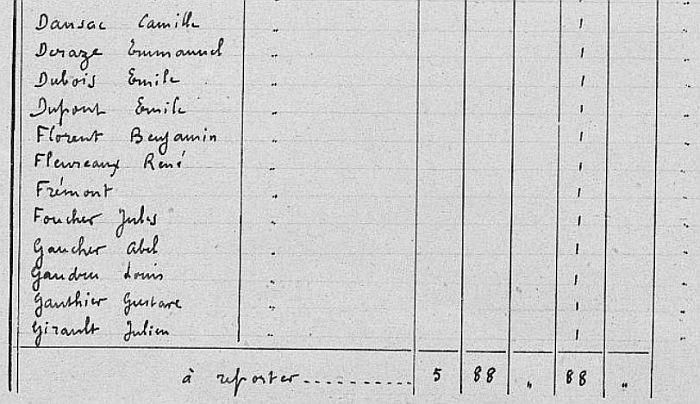 Dansac Camille " 1
Deraze Emmanuel " 1
Dubois Emile " 1
Dupont Emile " 1
Florent Benjamin " 1
Fleureaux René " 1
Frémont " 1
Foucher Jules " 1
Gaucher Abel " 1
Gaudru Louis " 1
Gauthier Gustave " 1
Girault Julien " 1
à reporter............... 5 88 " 88 "